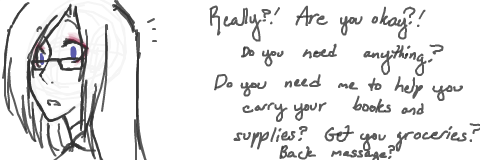 Really?! Are you okay?!
Do you need anything?
Do you need me to help you
carry your books and
supplies? Get you groceries?
Back massage?